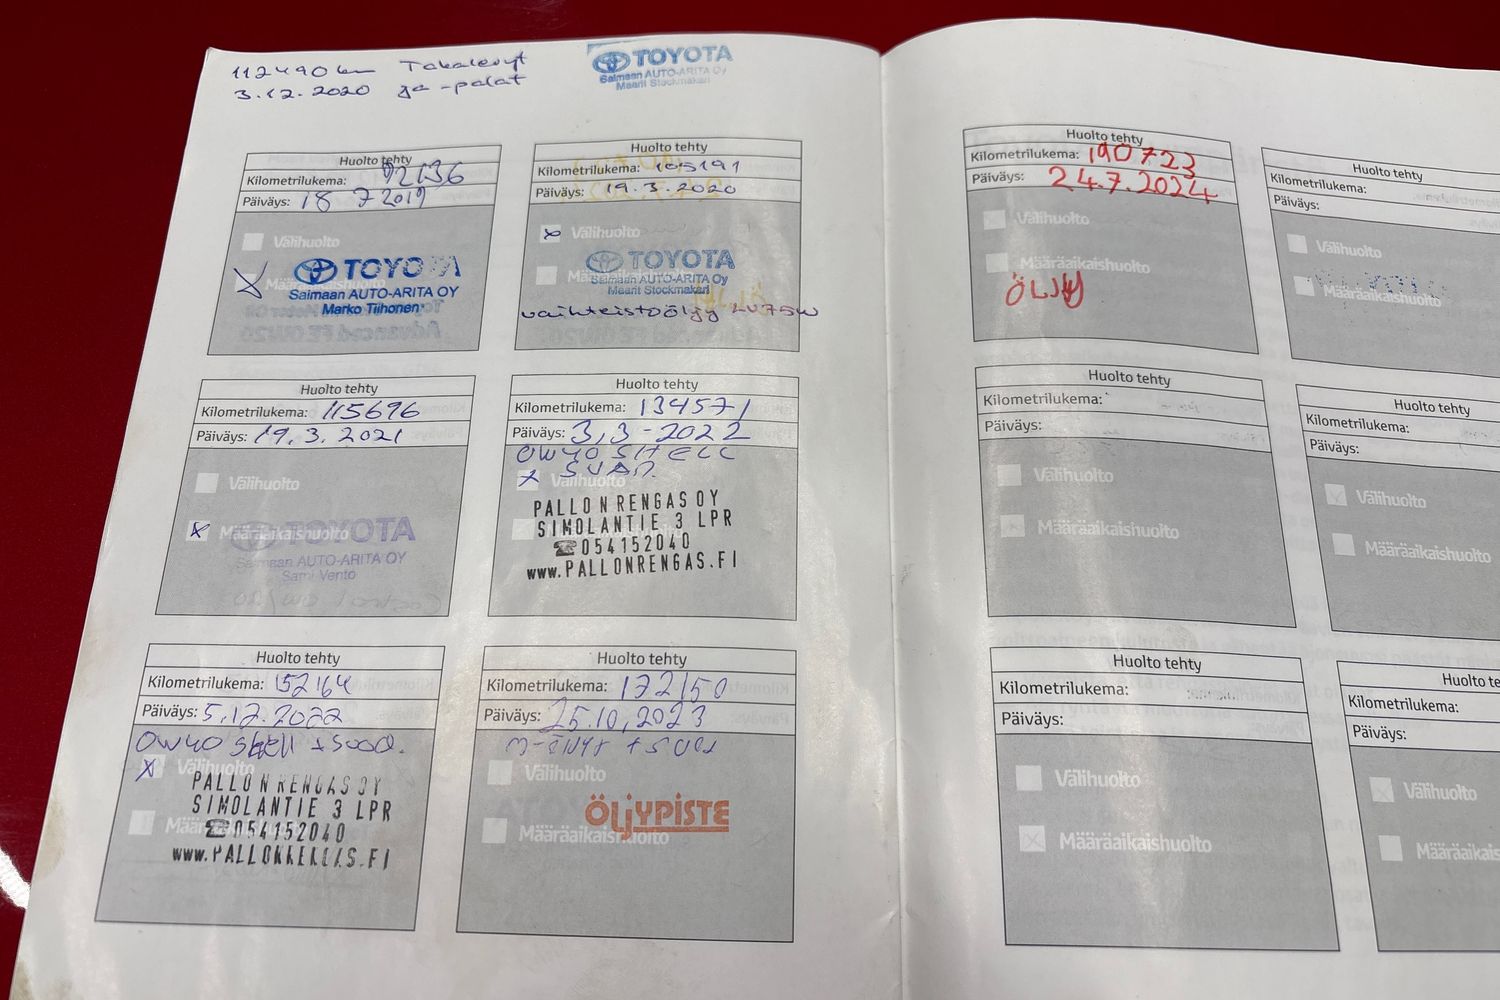 112490 km Takalevyt
3.12.2020 ja -palat
TOYOTA
Saimaan AUTO-ARITA Oy
Maarit Stockmakari
Huolto tehty
Kilometrilukema: 92136
Päiväys: 18 7 2019
Välihuolto
Määräaikaishuolto
TOYOTA
Saimaan AUTO-ARITA OY
Marko Tiihonen
Huolto tehty
Kilometrilukema: 105191
Päiväys: 19.3.2020
x Välihuolto
Määräaikaishuolto
TOYOTA
Saimaan AUTO-ARITA Oy
Maarit Stockmakari
vaihteistoöljy LV75W
Huolto tehty
Kilometrilukema: 115696
Päiväys: 19.3.2021
Välihuolto
x Määräaikaishuolto
TOYOTA
Saimaan AUTO-ARITA OY
Sami Vento
Huolto tehty
Kilometrilukema: 134571
Päiväys: 3,3-2022
0W40 SHELL
+ SUOD.
x Välihuolto
PALLON RENGAS OY
SIMOLANTIE 3 LPR
☎054152040
www.PALLONRENGAS.FI
Huolto tehty
Kilometrilukema: 152164
Päiväys: 5.12.2022
0W40 Shell + Suod.
x Välihuolto
Määräaikaishuolto
PALLON RENGAS OY
SIMOLANTIE 3 LPR
☎054152040
www.PALLONRENGAS.FI
Huolto tehty
Kilometrilukema: 172150
Päiväys: 25.10.2023
Välihuolto
Määräaikaishuolto
ÖLJYPISTE
Huolto tehty
Kilometrilukema: 190723
Päiväys: 24.7.2024
Välihuolto
Määräaikaishuolto
ÖLJY
Huolto tehty
Kilometrilukema:
Päiväys:
Välihuolto
Määräaikaishuolto
Huolto tehty
Kilometrilukema:
Päiväys:
Välihuolto
Määräaikaishuolto
Huolto tehty
Kilometrilukema:
Päiväys:
Välihuolto
Määräaikaishuolto
Huolto tehty
Kilometrilukema:
Päiväys:
Välihuolto
Määräaikaishuolto
Huolto te
Kilometrilukema:
Päiväys:
Välihuolto
Määräaikais